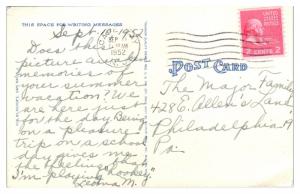 THIS SPACE FOR WRITING MESSAGES
Sept. 10-1952
Does this
picture arouse
memories of
your summer
vacation? We
are here just
for the day. Being
on a pleasure
trip on a school
day gives me
the feeling that
I'm playing "hookey"
Leona M.
1952
POST CARD
2 CENTS 2
The Major Family
428 E. Allen's Lane
Philadelphia 19
Pa.